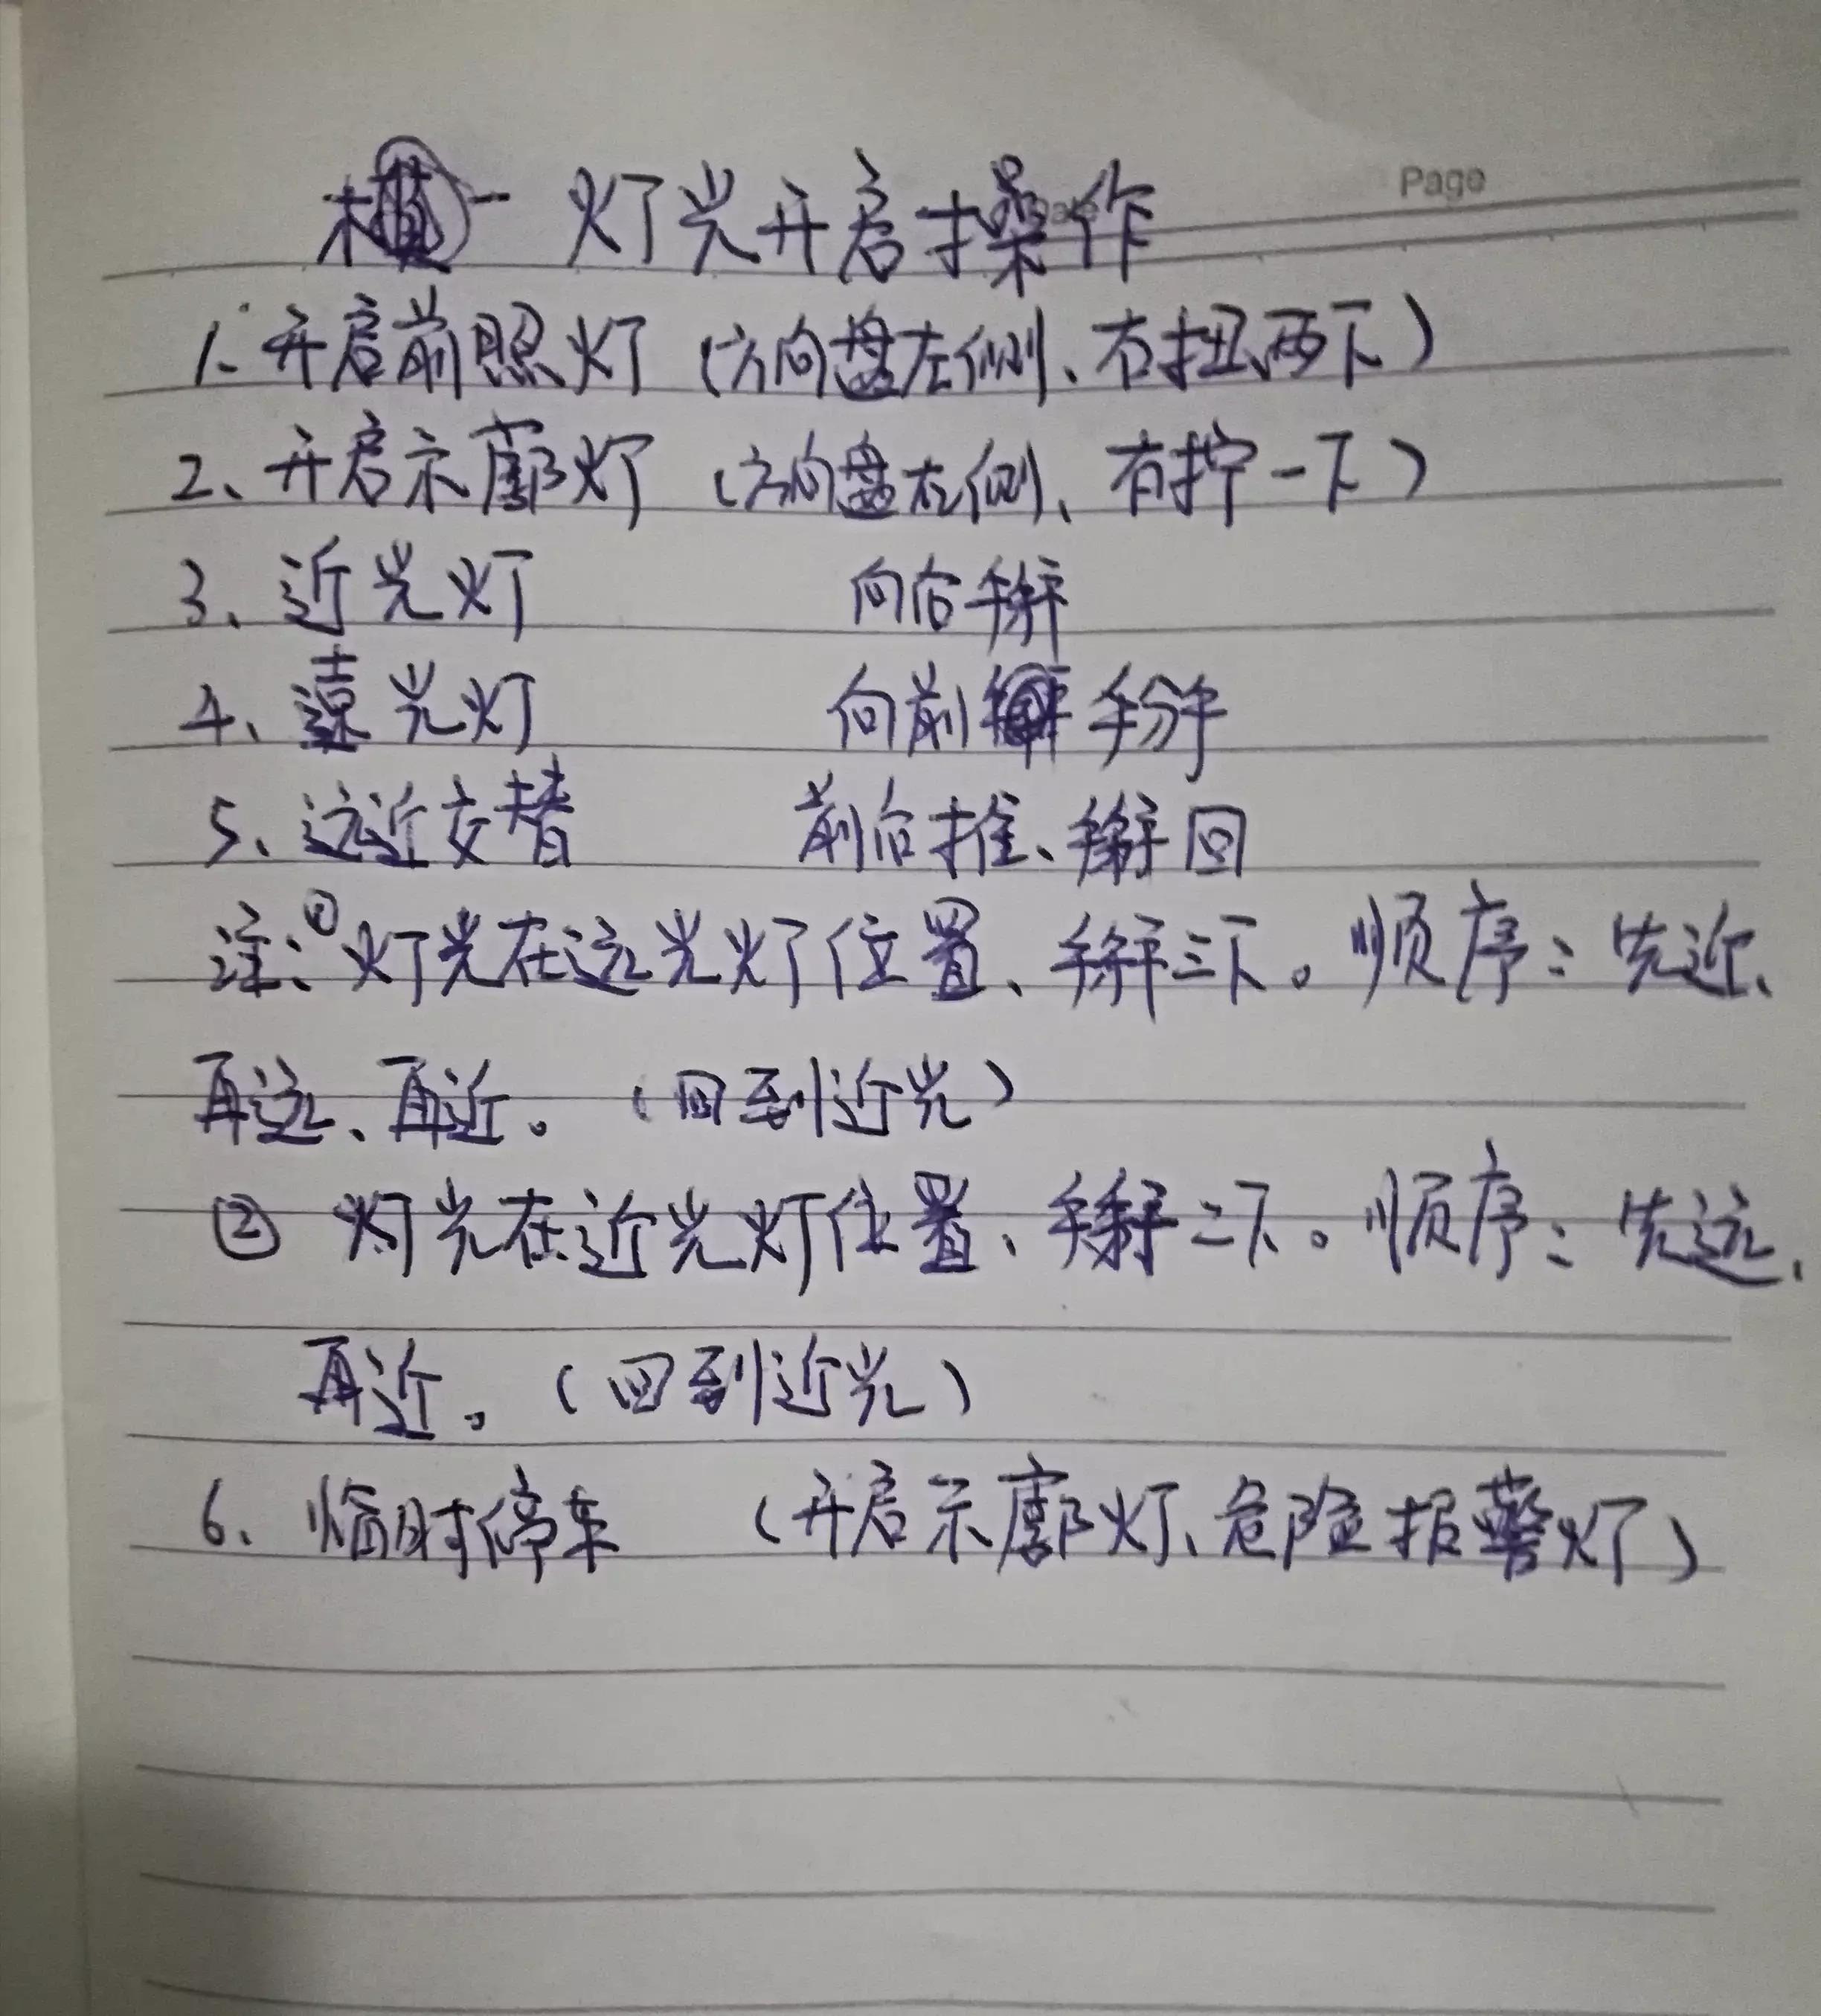 Page
一 灯光开启操作
1、开启前照灯（方向盘左侧、右扭两下）
2、开启示廓灯（方向盘左侧、有拧一下）
3、近光灯 向后掰
4、远光灯 向前 掰
5、远近交替 前后推、掰回
注：①灯光在远光灯位置、掰三下。顺序：先近、
再远、再近。（回到近光）
② 灯光在近光灯位置、掰二下。顺序：先远、
再近。（回到近光）
6、临时停车 （开启示廓灯、危险报警灯）